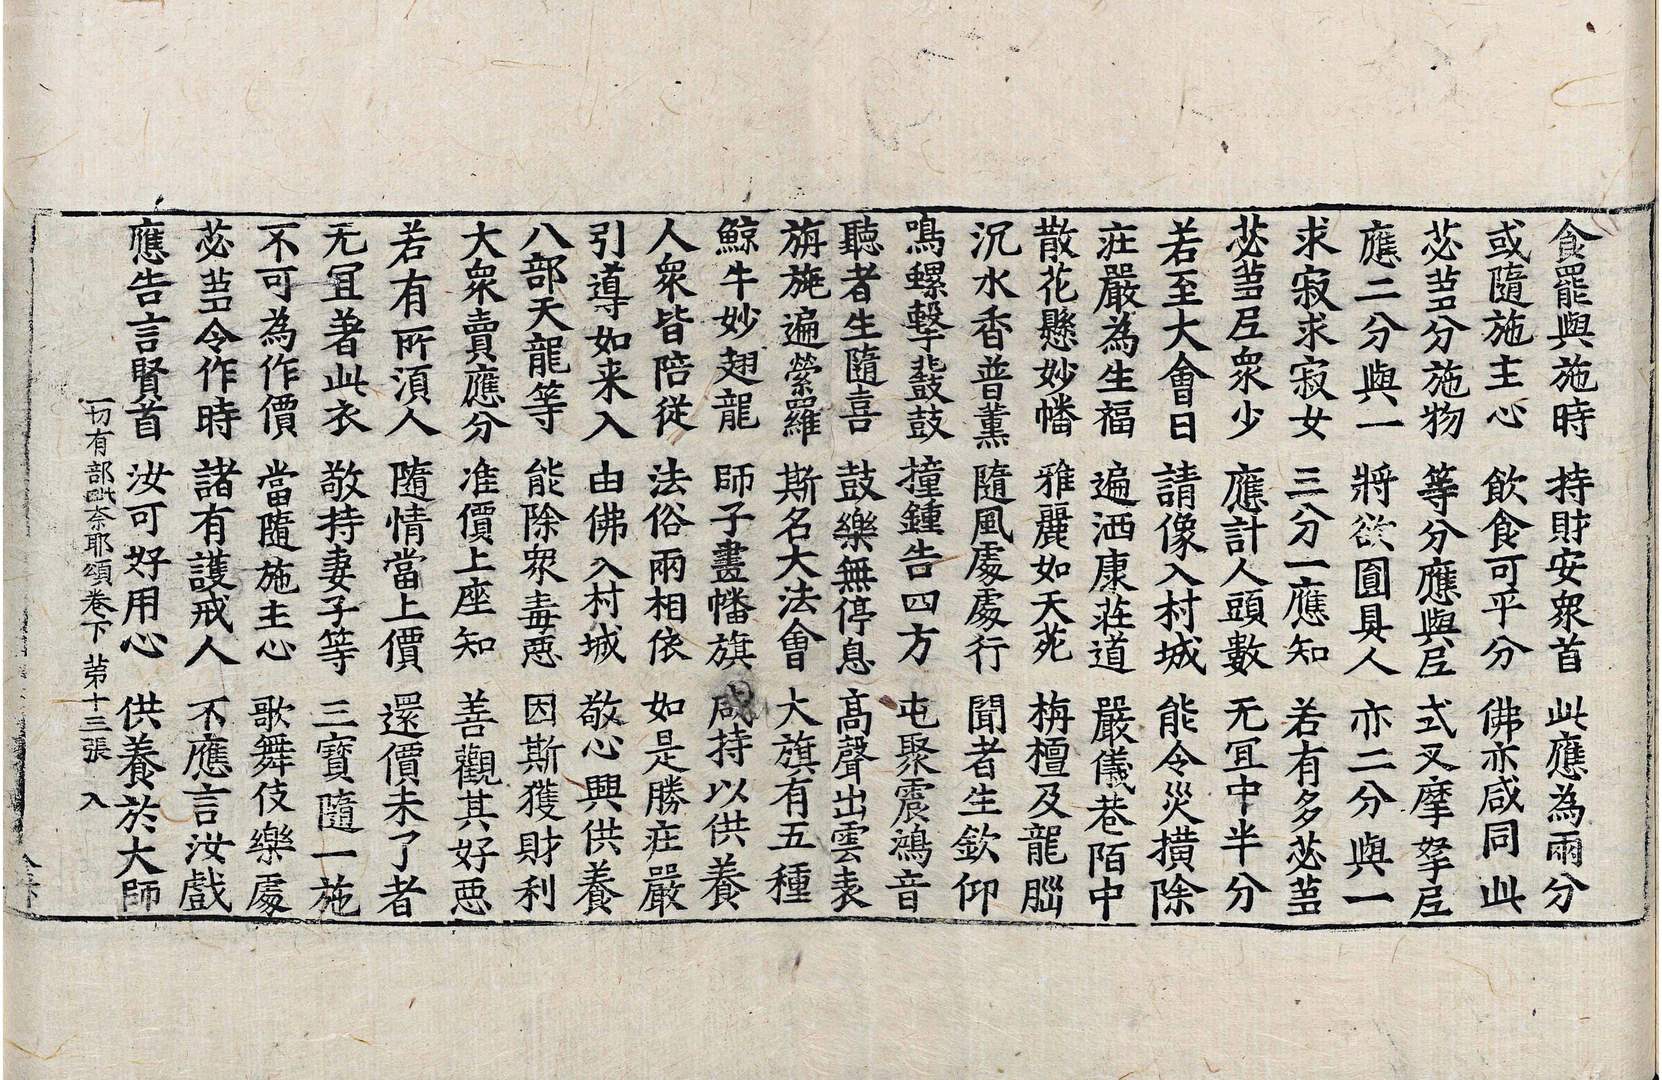 食罷與施時 持財安衆首 此應為兩分
或隨施主心 飲食可平分 佛亦咸同此
苾蒭分施物 等分應與𡰱 式叉摩拏𡰱
應二分與一 將欲圎具人 亦二分與一
求寂求寂女 三分一應知 若有多苾蒭
苾蒭𡰱衆少 應計人頭數 无冝中半分
若至大會日 請像入村城 能令災橫除
莊嚴為生福 遍洒康莊道 嚴儀巷陌中
散花懸妙幡 雅麗如天苑 栴檀及龍腦
沉水香普薰 隨風處處行 聞者生欽仰
鳴螺擊鼓鼓 撞鍾告四方 屯聚震鴻音
聽者生隨喜 鼓樂無停息 高聲出雲表
旃旎遍縈羅 斯名大法會 大旗有五種
鯨牛妙翅龍 師子畫幡旗 咸持以供養
人衆皆陪從 法俗兩相依 如是勝莊嚴
引導如来入 由佛入村城 敬心興供養
八部天龍等 能除衆毒惡 因斯獲財利
大衆賣應分 准價上座知 善觀其好惡
若有所湏人 隨情當上價 還價未了者
无冝著此衣 敬持妻子等 三寳隨一施
不可為作價 當隨施主心 歌舞伎樂處
苾蒭令作時 諸有護戒人 不應言汝戲
應告言賢首 汝可好用心 供養於大師
一切有部毗奈耶頌卷下 苐十三張 入